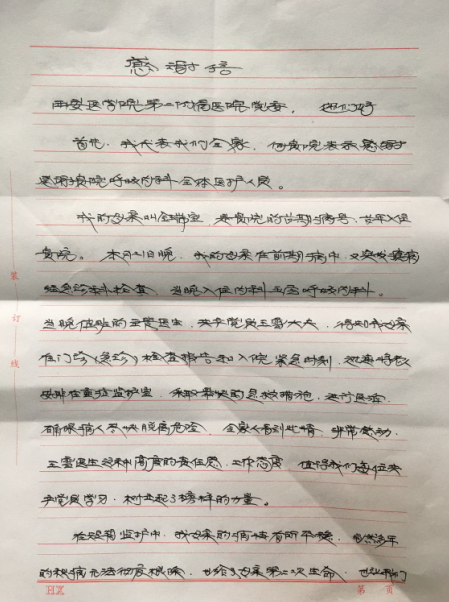 感谢信
西安医学院第二附属医院党委，您们好
首先，我代表我们全家，向贵院表示感谢
感谢贵院呼吸内科全体医护人员。
我的父亲叫 是贵院的 病号，
贵院。本月 日晚，我的父亲在前期病中，又突发疾病
经急诊科检查，当晚入住内科 呼吸内科。
当晚值班的主管医生，共产党员王雪大夫，得知我父亲
在门诊(急诊)检查报告和入院紧急时刻，迅速将我
安排在重症监护室，采取最快的急救措施，进行医治
确保病人尽快脱离危险，全家人看到此情，非常感动，
王雪医生这种高度的责任感，工作态度，值得我们每位共
产党员学习，树立起了榜样的力量。
在短期监护中，我父亲的病情有所平稳，虽然多年
的疾病无法彻底根除，也给了父亲第二次生命，也让我们
装
订
线
HX 第 页